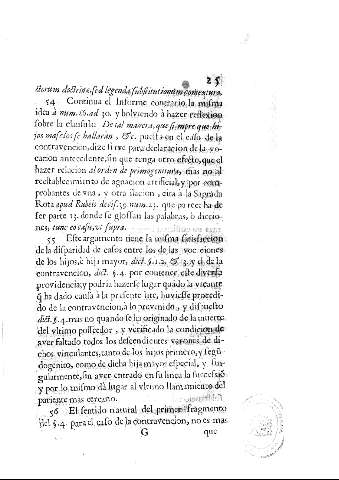 25
storum doctrina, sed legenda substitutionum conjectura.
54 Continua el Informe contrario la misma
idèa à num. 16. ad 30. y bolviendo à hazer reflexion
sobre la clausula: De tal manera, que siempre que hi-
jos maselos se hallaràn, &c. puesta en el caso de la
contravencion, dize sirve para declaracion de la vo-
cacion antecedente, sin que tenga otro efecto, que el
hazer relacion al orden de primogenitura, mas no al
restablecimiento de agnacion artificial, y por com-
probantes de una, y otra ilacion, cita à la Sagrada
Rota apud Rubeis decis. 39 num. 23. que parece ha de
ser parte 13. donde se glossan las palabras, ò diccio-
nes, tunc eo casu, et supra.
55 Este argumento tiene la misma satisfaccion
de la disparidad de casos entre los de las vocaciones
de los hijos, è hija mayor, dict. §. 1. 2. & 3. y el de la
contravencion, dict. §. 4. por contener este diversa
providencia, y podria hazerse lugar quado la vacante
q̃ ha dado causa à la presente lite, huviesse procedi-
do de la contravencion, à lo prevenido, y dispuesto
dict. §. 4. mas no quando se ha originado de la muerte
del vltimo posseedor, y verificado la condicion de
aver faltado todos los descendientes varones de di-
chos vinculantes, tanto de los hijos primero, y segũ-
dogenito, como de dicha hija mayor especial, y sin-
gularmente, sin aver entrado en su linea la succession
y por lo mismo dà lugar al vltimo llamamiento del
pariente mas cercano.
56 El sentido natural del primer fragmento
del §. 4. para el caso de la contravencion, no es mas
G que